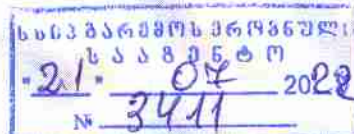 სსიპ გარემოს ეროვნული
სააგენტო
"21" 07 2022
№ 3411